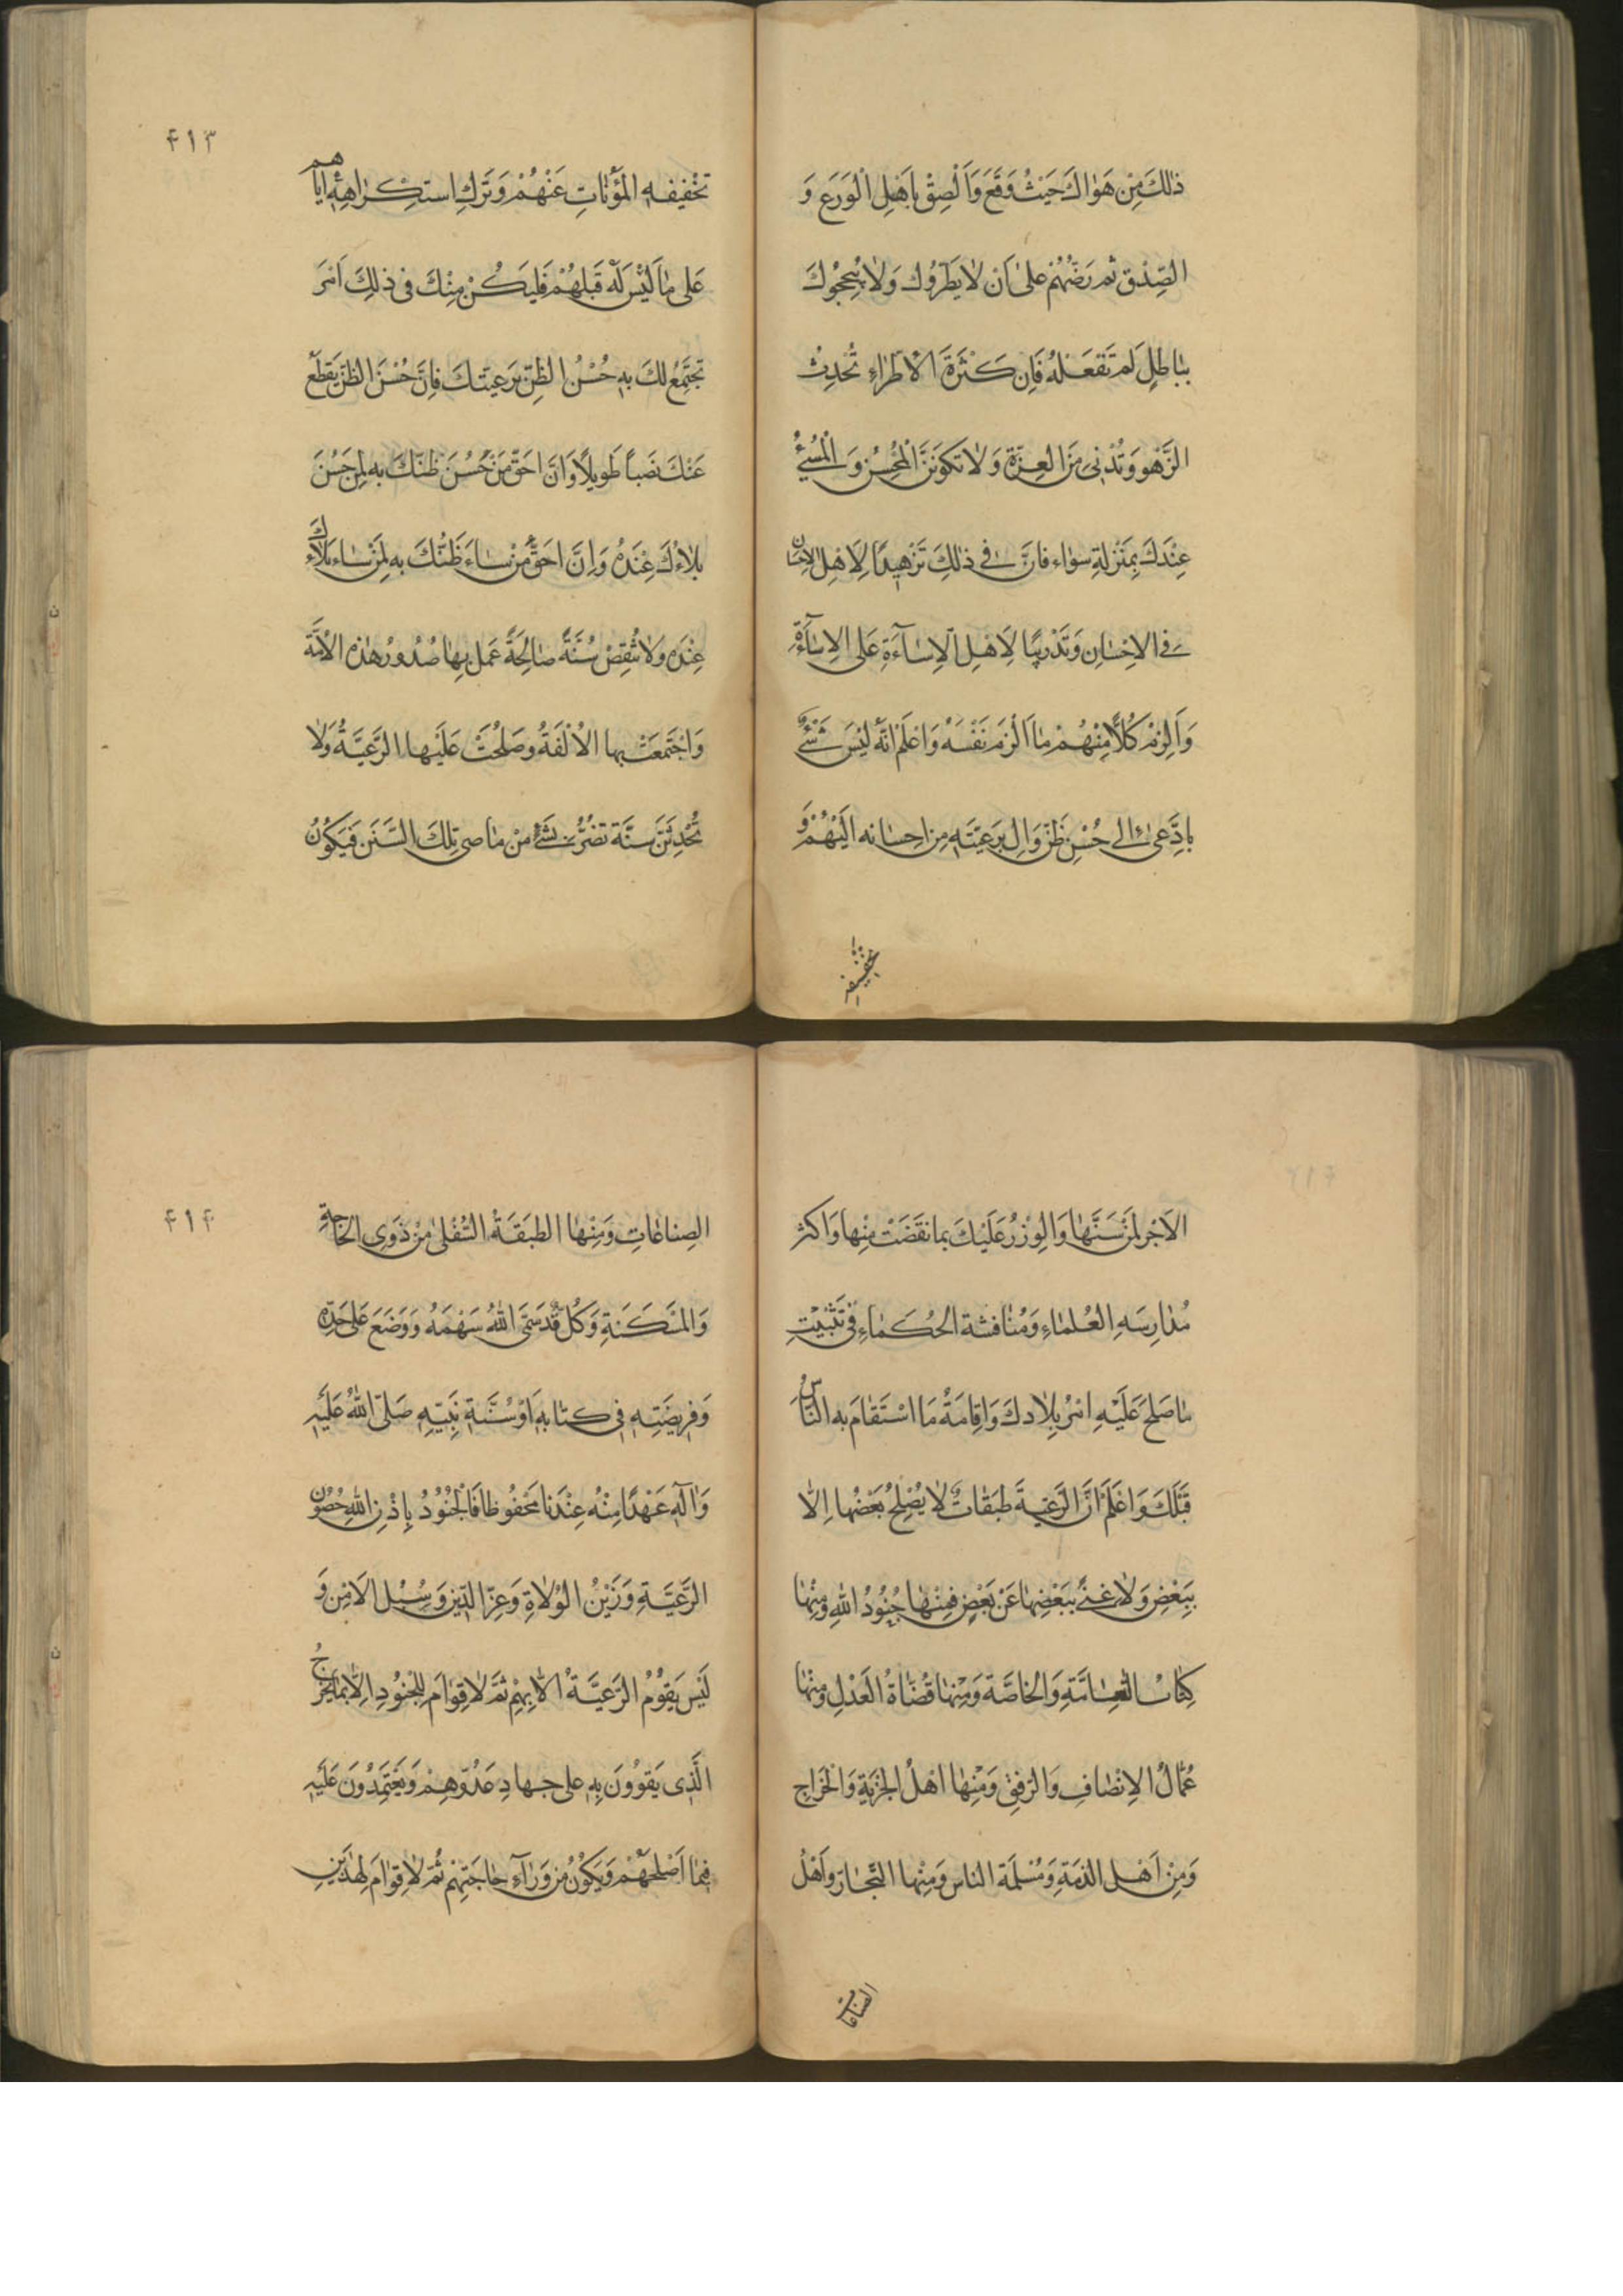 ذٰلكَ مِنْ هَوٰاكَ حَيْثُ وَقَعَ وَاَلْصِقْ بِاَهْلِ الْوَرَعِ وَ
الصِّدْقِ ثم رُضْهُمْ عَلىٰ اَن لاٰ يُطْرُوكَ وَلاٰ يُبجِّحُوكَ
بِبٰاطِلٍ لَم تَفْعَلْهُ فَاِن كَثْرَةَ الْاطْرٰاءِ تُحْدِثُ
الزَّهْوَ وَتُدْنى مِنَ العِزَّةِ وَلاٰ تكونَنَّ الْمُحْسِنُ وَالْمُسئُ
عِنْدَكَ بِمَنْزِلَةٍ سوٰاء فانَّ فى ذٰلِكَ تَزْهيدًا لِاَهْلِ الاحسٰان
فى الاِحْسٰانِ وَتَدْريبًا لِاَهْلِ الْاِسٰآءَةِ عَلى الاِسٰآءَةِ
وَاَلْزِمْ كُلاًّ مِنْهُمْ مٰا اَلْزَمَ نَفْسَهُ وَاعْلَمْ انَّه لَيْسَ شَئْ
بادْعىٰ الى حُسْنِ ظَنِّ وٰالٍ بِرَعِيَّتِهِ مِن احسٰانه الَيْهُمْ وَ
خفيفه
۴۱۳
تَخْفيفهِ المَؤُنٰاتِ عَنْهُمْ وَتَركِ استكِرٰاهِهِ اياهم
عَلى مٰا لَيْسَ لَه قَبْلهُمْ فَليَكُنْ مِنْكَ فى ذلِكَ اَمْرَ
تجتَمِعُ لكَ بهِ حُسْنُ الظنِّ بَرعيتكَ فاِنَّ حُسْنَ الظنّ يَقْطَع
عَنْكَ نصَباً طويلًا وَانَّ احَقَّ مَنْ حَسُنَ ظنّكَ به لمنْ حَسُنَ
بلاٰءُكَ عِنْدَهُ وَاِنَّ احَقَّ مَنْ سٰاءَ ظَنُّكَ به لِمَنْ سٰاء بَلاٰءكَ
عِنْدَه وَلاٰ تنْقِضْ سُنَّةً صٰالِحَةً عَمِلَ بِهٰا صُدُورُ هٰذه الْاُمَّة
وَاجْتَمَعَتْ بها الاُلْفَةُ وصَلحَتْ عَلَيْها الرَّعيَّةُ وَلاٰ
تُحْدِثَنَّ سنَّة تضُرُّ بشَئْ مِنْ مٰاضى تِلكَ السُّنَن فَيَكُونُ
الاَجْر لِمَنْ سَنَّهٰا وَالْوِزْرُ عَلَيْكَ بما نقَضْتَ مِنْها وَاَكثر
مُدٰارِسَهِ العُلمٰاءِ وَمُنٰافثة الحُكَمٰاءِ فى تَثْبيْتِ
مٰا صَلحَ عَلَيْهِ امْرُ بِلاٰدكَ وَاِقٰامَةُ مَا اسْتَقٰامَ به النّٰاسُ
قَبْلَكَ وَاعْلَمْ اَنَّ الرَّعيةَ طبَقٰاتٌ لاٰ يُصْلِحُ بَعْضُها اِلاّٰ
بِبَعْضٍ وَلاٰ غنىٰ بِبَعْضِهٰا عَنْ بَعْضٍ فمِنْهٰا جُنُودُ اللهِ وَمِنْهٰا
كِتٰابُ العٰامَّةِ وَالخٰاصَّة وَمِنْها قُضٰاةُ العَدْلِ وَمِنْهٰا
عُمّٰالُ الاِنْصٰافِ وَالرّفقِ وَمِنْهٰا اَهْلُ الجِزْيَةِ وَالخَرٰاجِ
وَمِنْ اَهْلِ الذمّةِ وَمُسْلمَة الناس وَمِنْها التّجّٰار وَاَهْلُ
الصناعات
۴۱۴
الصِناعٰاتِ وَمِنْهٰا الطبَقَةُ السُّفْلىٰ مِنْ ذَوِى الحاجَةِ
وَالمسْكَنَةِ وَكُلٌّ قَدْ سَمَّى اللهُ سَهْمَهُ وَوَضَعَ عَلى حَدّه
وَفَريضَتِهِ فى كتٰابهِ اَوْ سُنَّةِ نَبِيّهِ صَلىَّ اللهُ عَلَيْهِ
وَاٰلهِ عَهْدًا مِنْهُ عِنْدَنا مَحْفُوظا فَالْجُنُودُ بِاِذْنِ اللهِ حُصُون
الرَّعيَّةِ وَزَيْنُ الوُلاٰةِ وَعِزّ الدّين وَسُبُل الاَمْن وَ
لَيْسَ يَقوُمُ الرَّعيَّةُ الاّٰ بِهِمْ ثمَّ لاٰ قِوٰامَ لِلْجُنُودِ اِلاّٰ بمٰا يخْرُجُ
الَّذِى يَقوُونَ بِهِ على جهادِ عَدُوّهِمْ وَيَعْتَمِدُونَ عَلَيْهِ
فِيمٰا اَصْلَحهُمْ وَيَكُونُ مِن وَرٰآءِ حٰاجَتِهِم ثُمّ لاٰ قِوٰامَ لِهٰذَيْنِ